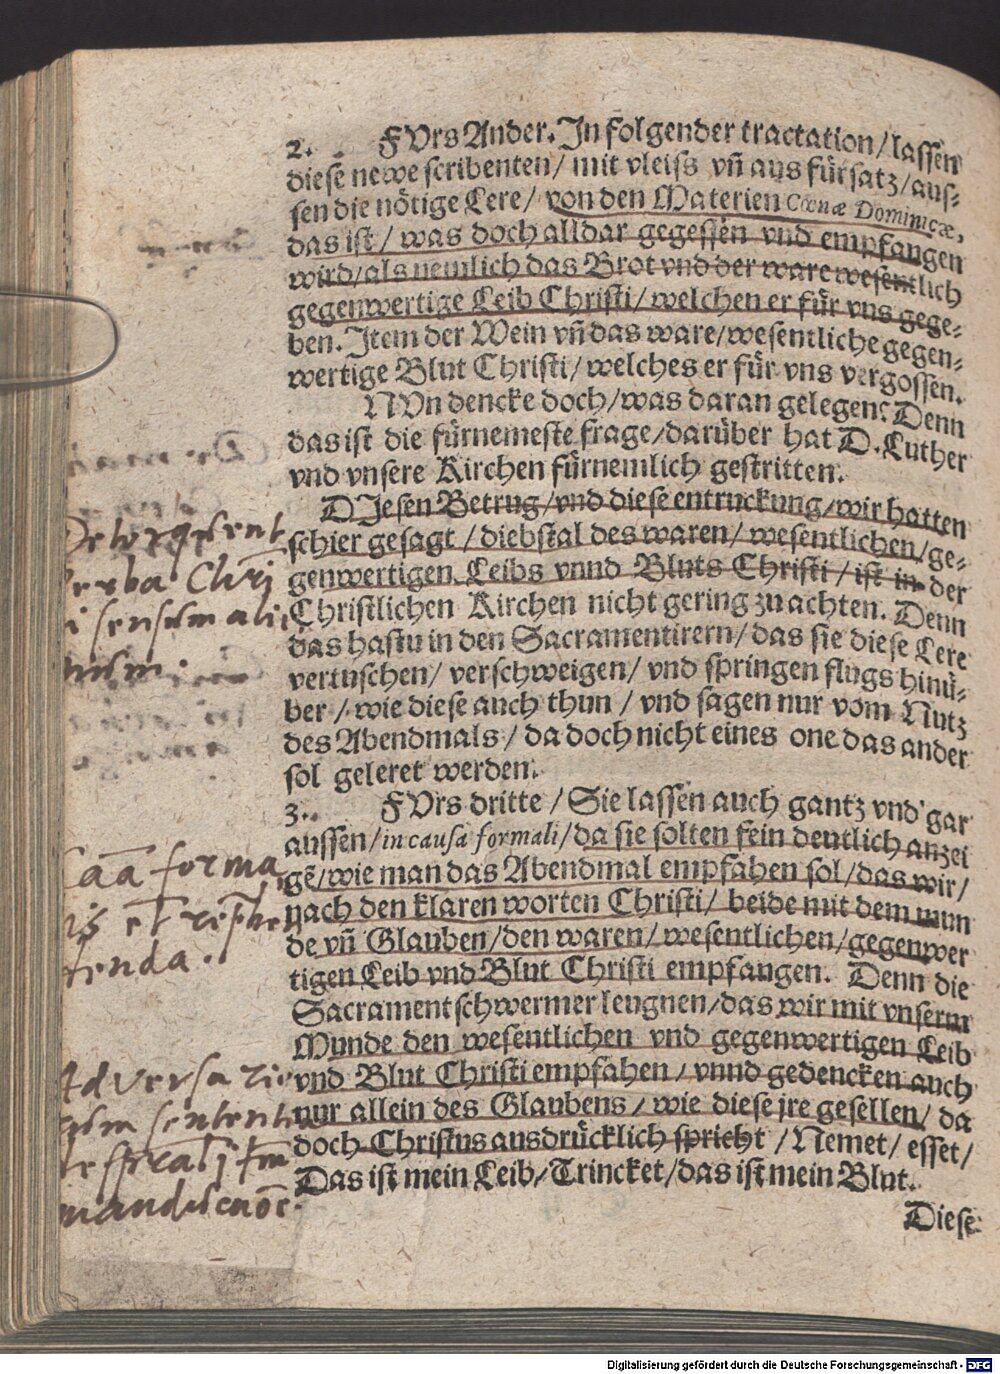 2. FVrs Ander. In folgender tractation / lassen
diese newe scribenten / mit vleiss vñ aus fürsatz / aus-
sen die nötige Lere / von den Materien Cœnæ Dominicæ,
das ist / was doch alldar gegessen vnd empfangen
wird / als nemlich das Brot vnd der ware wesentlich
gegenwertige Leib Christi / welchen er für vns gege-
ben. Item der Wein vñ das ware / wesentliche gegen-
wertige Blut Christi / welches er für vns vergossen.
NVn dencke doch / was daran gelegen: Denn
das ist die fürnemeste frage / darüber hat D. Luther
vnd vnsere Kirchen fürnemlich gestritten.
DJesen Betrug / vnd diese entruckung / wir hatten
schier gesagt / diebstal des waren / wesentlichen / ge-
genwertigen Leibs vnnd Bluts Christi / ist in der
Christlichen Kirchen nicht gering zu achten. Denn
das hastu in den Sacramentirern / das sie diese Lere
vertuschen / verschweigen / vnd springen flugs hinü-
ber / wie diese auch thun / vnd sagen nur vom Nutz
des Abendmals / da doch nicht eines one das ander
sol geleret werden.
3. FVrs dritte / Sie lassen auch gantz vnd gar
aussen / in causa formali / da sie solten fein deutlich anzei
gẽ / wie man das Abendmal empfahen sol / das wir /
nach den klaren worten Christi / beide mit dem mun
de vñ Glauben / den waren / wesentlichen / gegenwer
tigen Leib vnd Blut Christi empfangen. Denn die
Sacramentschwermer leugnen / das wir mit vnserm
Munde den wesentlichen vnd gegenwertigen Leib
vnd Blut Christi empfahen / vnnd gedencken auch
nur allein des Glaubens / wie diese jre gesellen / da
doch Christus ausdrücklich spricht / Nemet / esset /
Das ist mein Leib / Trincket / das ist mein Blut.
Diese
Detorquent
verba Chri
sensum ali
enum.
Caã forma
et
tenda.
Adversario
sententi
Digitalisierung gefördert durch die Deutsche Forschungsgemeinschaft - DFG